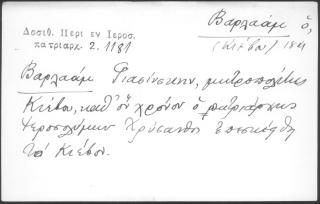 Βαρλαάμ ὁ,
(Κιέβου) 1811
Δοσιθ. Περι εν Ιεροσ.
πατριαρχ. 2. 1181
Βαρλαάμ Γιασίνσκην, μητροπολίτης
Κιέβου, καθ' ὃν χρόνον ὁ πατριάρχης
Ἱεροσολύμων Χρύσανθος ἐπεσκέφθη
τὸ Κίεβον.